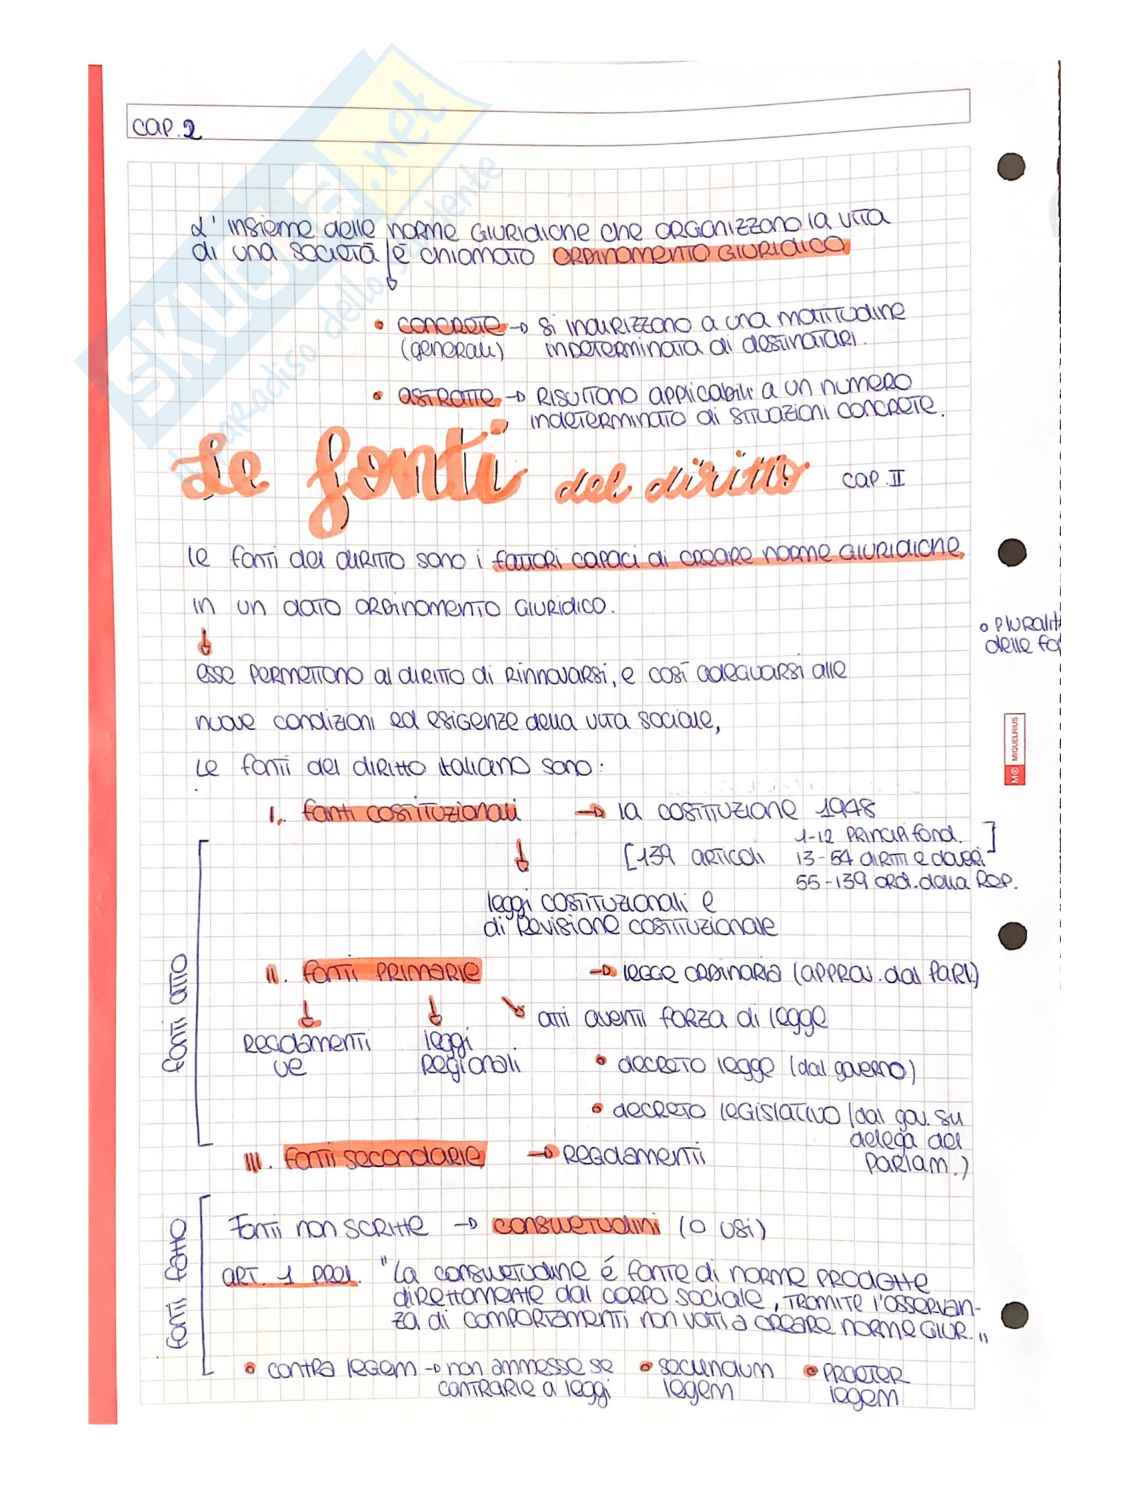 CAP. 2
L'insieme delle norme giuridiche che organizzano la vita
di una società è chiamato ORDINAMENTO GIURIDICO
• CONCRETE → si indirizzono a una moltitudine
(generali) indeterminata di destinatari.
• ASTRATTE → Risultono applicabili a un numero
indeterminato di situazioni concrete.
Le fonti del diritto CAP. II
Le fonti del diritto sono i fattori capaci di creare norme giuridiche
in un dato ordinamento giuridico.
esse permettono al diritto di rinnovarsi, e così adeguarsi alle
nuove condizioni ed esigenze della vita sociale,
Le fonti del diritto italiano sono:
I. fonti costituzionali → la costituzione 1948
[139 articoli 1-12 Principi fond.
13-54 diritti e doveri
55-139 ord. della Rep.]
leggi costituzionali e
di revisione costituzionale
II. fonti primarie → legge ordinaria (approv. dal Parl.)
atti aventi forza di legge
Regolamenti leggi
UE regionali • decreto legge (dal governo)
• decreto legislativo (dal gov. su
delega del
parlam.)
III. fonti secondarie → Regolamenti
fonti atto
Fonti non scritte → consuetudini (o usi)
ART. 1 prel. "La consuetudine é fonte di norme prodotte
direttamente dal corpo sociale, tramite l'osservan-
za di comportamenti non volti a creare norme giur.,,
• contra legem → non ammesse se • secundum • praeter
contrarie a leggi legem legem
fonti fatto
• Pluralit
delle fo
MIQUELRIUS
SKUOLA.net
il paradiso dello studente